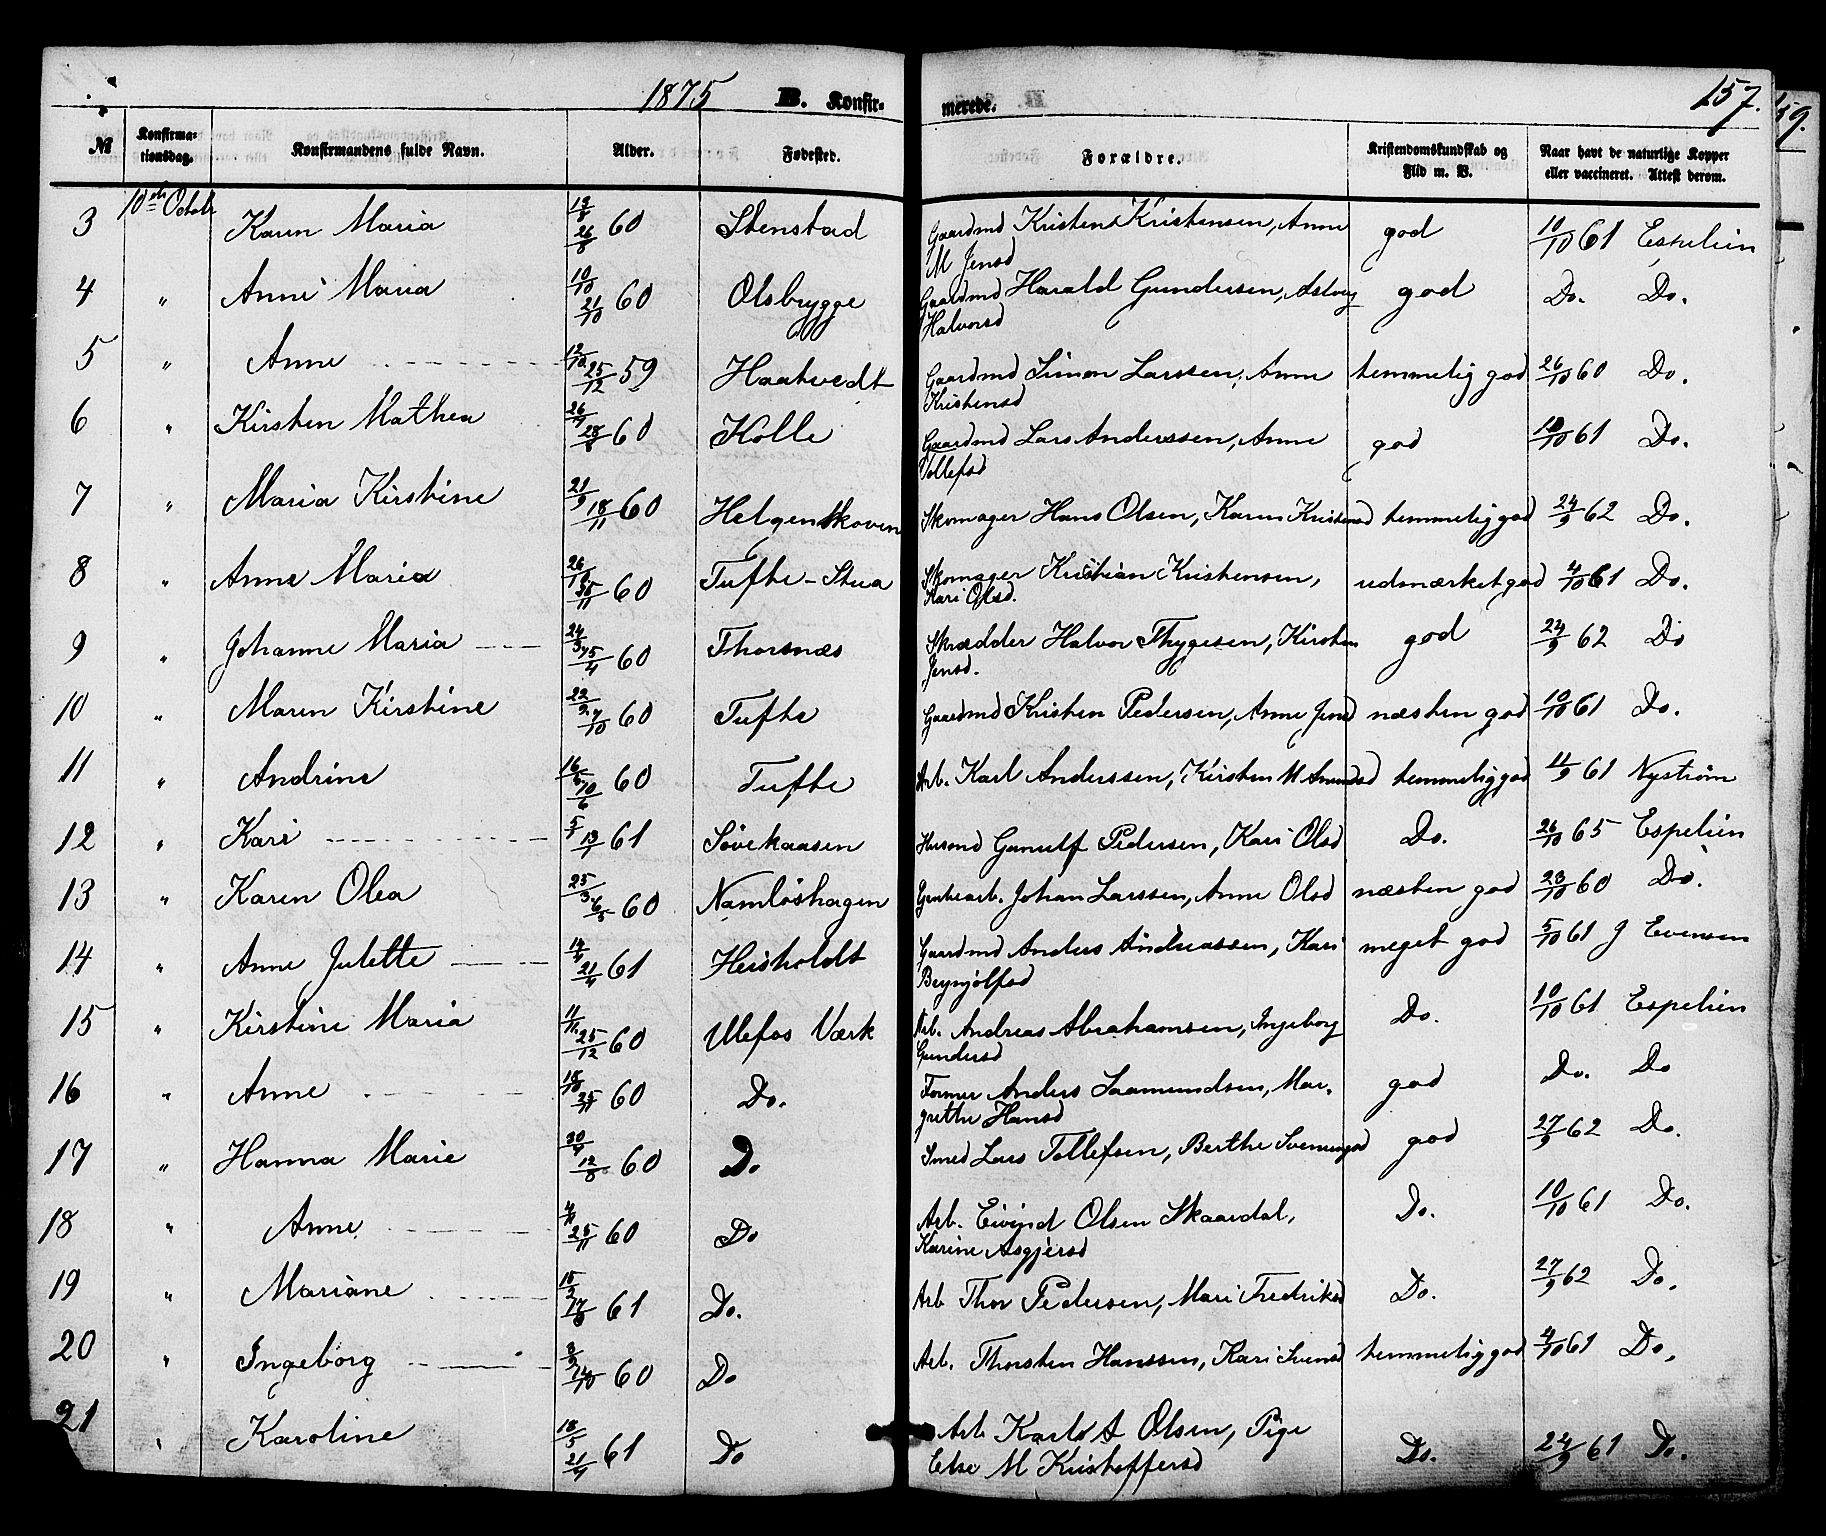 1875 B. Konfir- merede. 157. 59.
№ Konfirma-tionsdag. Konfirmandens fulde Navn. Alder. Fødested. Forældre. Kristendomskundskab og Flid m. V. Naar havt de naturlige Kopper eller vaccineret. Attest derom.
3 10de Octob. Karen Maria 26/8 60 Stenstad Gaardmd Kristen Kristensen, Anne M Jensd god 10/10 61 Espelien
4 " Anne Maria 10/10 21/10 60 Olsbrygge Gaardmd Harald Gundersen, Aslaug Halvorsd god Do. Do.
5 " Anne 12/12 25/12 59 Haatvedt Gaardmd Simon Larssen, Anne Kristensd temmelig god 26/10 60 Do.
6 " Kirsten Mathea 28/8 60 Kolle Gaardmd Lars Anderssen, Anne Tollefsd god 10/10 61 Do.
7 " Maria Kirstine 21/9 18/11 60 Helgenskoven Skomager Hans Olsen, Karen Kristensd temmelig god 24/9 62 Do.
8 " Anne Maria 26/10 25/11 60 Tufte-Stua Skomager Kristian Kristensen, Kari Olsd. udmærket god 4/10 61 Do.
9 " Johanne Maria 24/3 15/4 60 Thorsnæs Skrædder Halvor Thygesen, Kirsten Jensd. god 24/9 62 Do
10 " Maren Kirstine 22/9 7/10 60 Tufte Gaardmd Kristen Pedersen, Anne Jensd næsten god 10/10 61 Do.
11 " Andrine 16/5 10/6 60 Tufte Arb. Karl Anderssen, Kirsten M Amundsd temmelig god 4/9 61 Nystrøm
12 " Kari 5/1 13/1 61 Søvekaasen Husmd Gunulf Pedersen, Kari Olsd Do. 26/10 65 Espelien
13 " Karen Olea 25/3 6/5 60 Namløshagen Grubearb. Johan Larssen, Anne Olsd næsten god 23/10 60 Do.
14 " Anne Julette 21/4 61 Heisholdt Gaardmd Anders Andreassen, Kari Brynjølfsd meget god 5/10 61 J Evensen
15 " Kirstine Maria 11/11 25/12 60 Ulefos Værk Arb. Andreas Abrahamsen, Ingeborg Gundersd Do. 10/10 61 Espelien
16 " Anne 18/10 25/11 60 Do. Former Anders Saamundsen, Margrethe Hansd god Do. Do
17 " Hanna Marie 12/8 60 Do Smed Lars Tollefsen, Berthe Sveinungsd god 27/9 62 Do.
18 " Anne 25/11 60 Do Arb. Eivind Olsen Skaardal, Karine Asgjersd Do. 10/10 61 Do.
19 " Mariane 15/2 17/3 61 Do. Arb Thor Pedersen, Mari Fredriksd Do. 27/9 62 Do.
20 " Ingeborg 8/9 14/10 60 Do Arb. Thorsten Hanssen, Kari Svensd temmelig god 4/10 61 Do.
21 " Karoline 18/3 21/4 61 Do Arb Karl A Olsen, Pige Else M Kristoffersd Do. 24/9 61 Do.